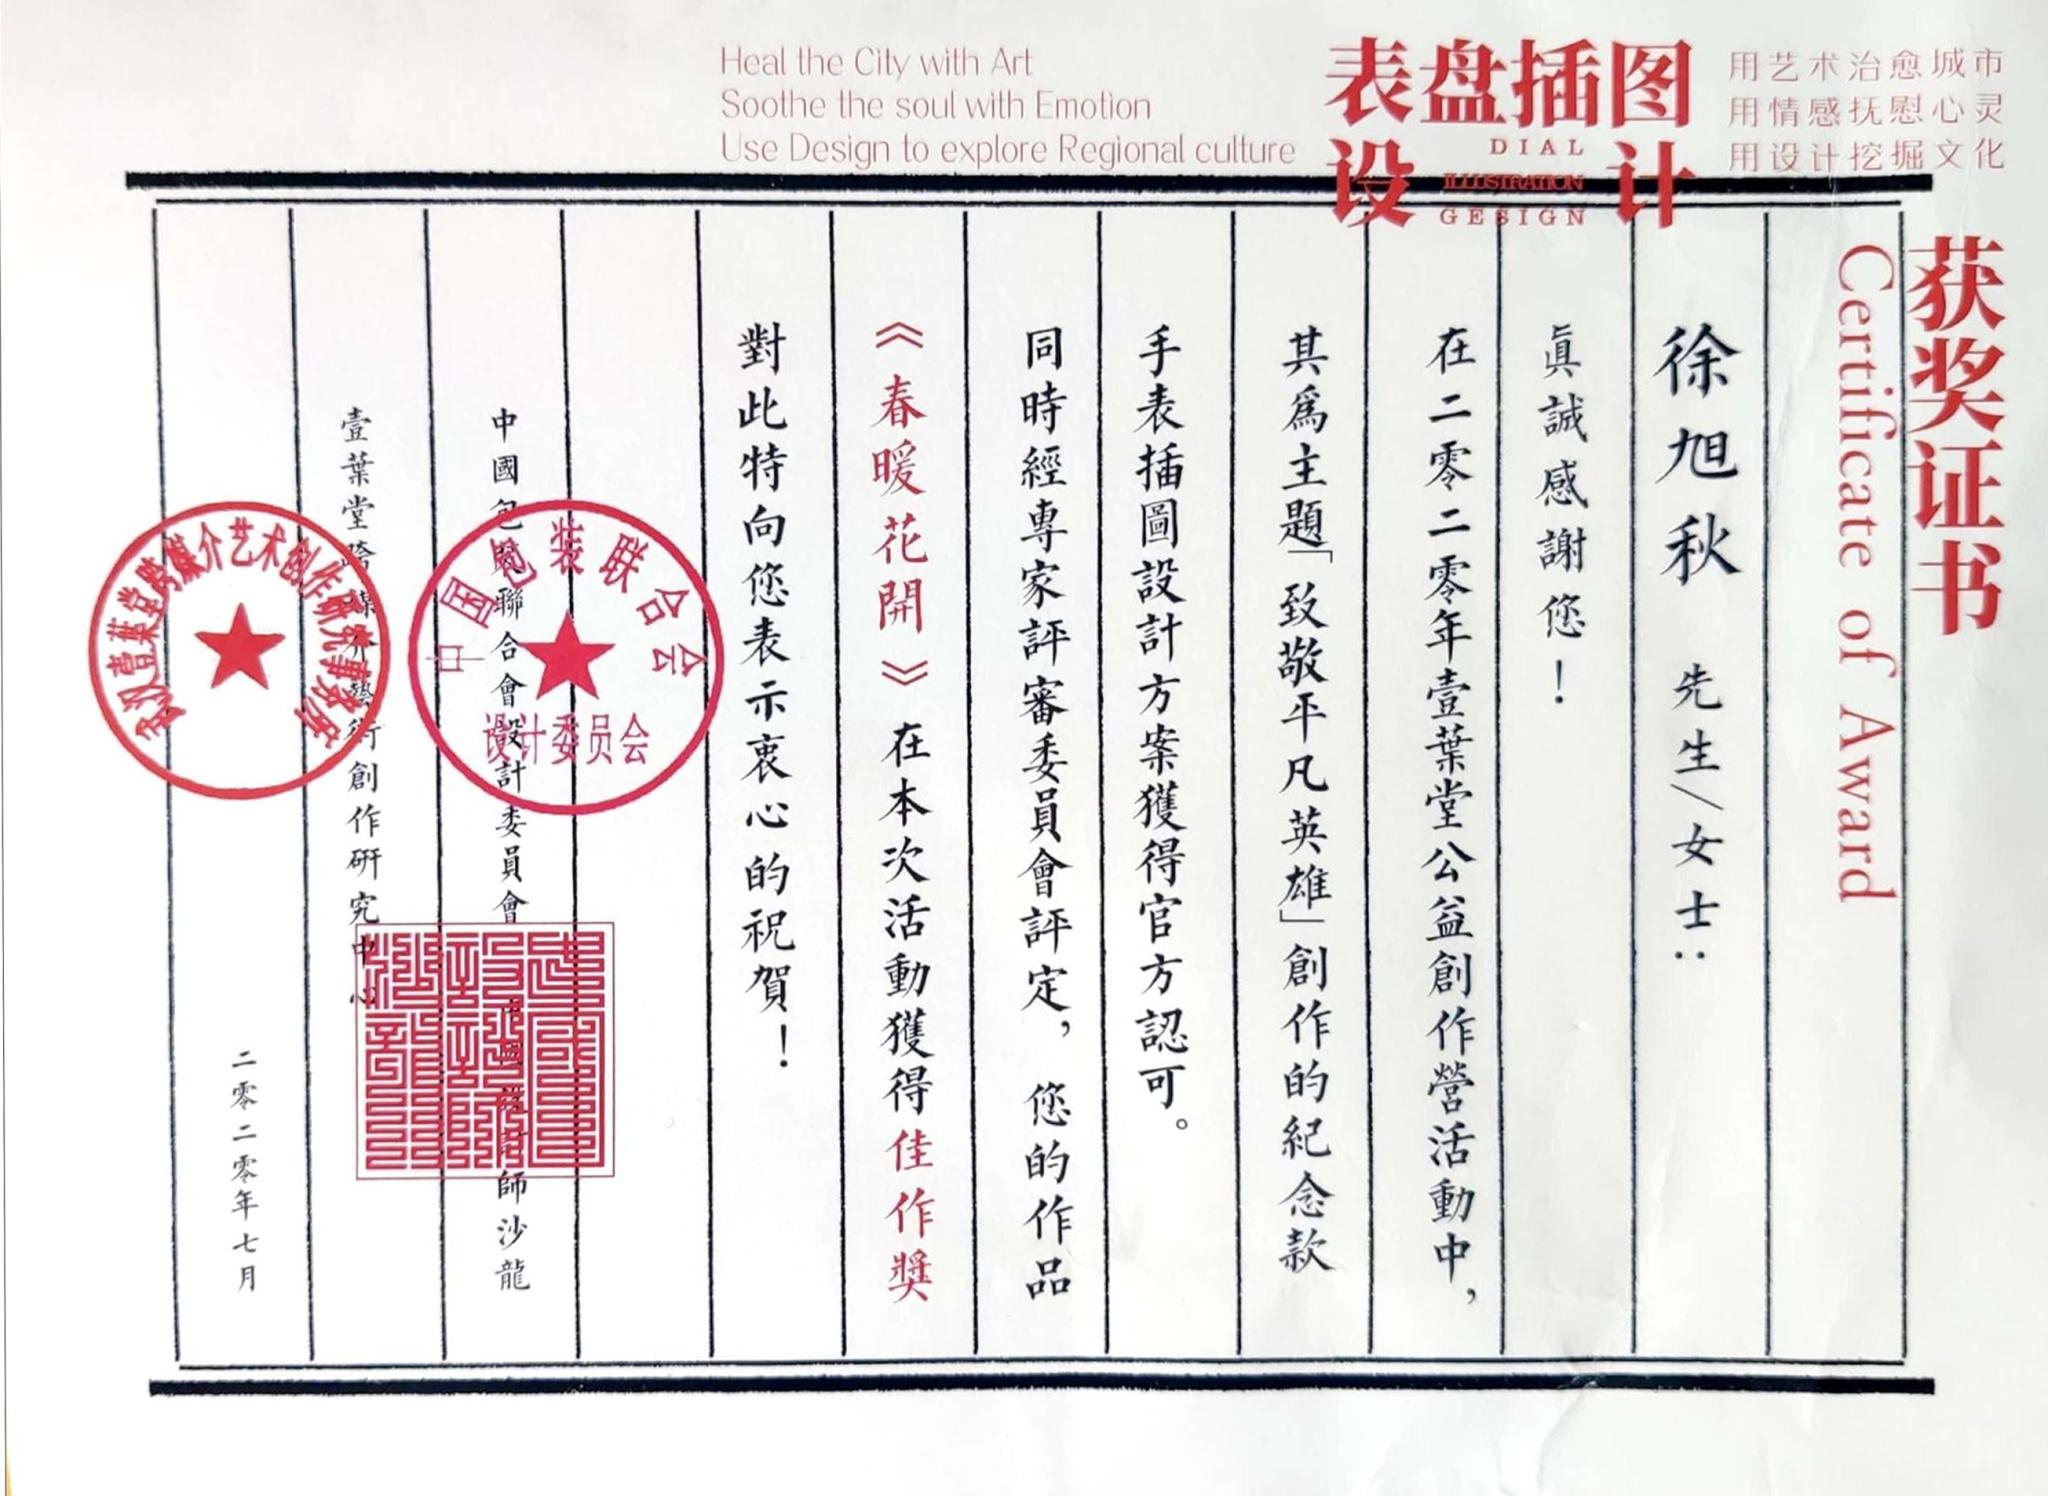 Heal the City with Art
Soothe the soul with Emotion
Use Design to explore Regional culture
表盘插图
设计
DIAL
ILLUSTRATION
GESIGN
用艺术治愈城市
用情感抚慰心灵
用设计挖掘文化
获奖证书
Certificate of Award
徐旭秋 先生/女士：
真誠感謝您！
在二零二零年壹葉堂公益創作營活動中，
其爲主題「致敬平凡英雄」創作的紀念款
手表插圖設計方案獲得官方認可。
同時經專家評審委員會評定，您的作品
《春暖花開》在本次活動獲得佳作獎
對此特向您表示衷心的祝賀！
中國包裝聯合會設計委員會 中國設計師沙龍
壹葉堂跨媒介藝術創作研究中心
二零二零年七月
中国包装联合会
设计委员会
壹葉堂跨媒介艺术创作研究事务所